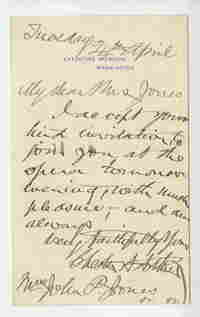 Tuesday
24th April
EXECUTIVE MANSION
WASHINGTON
My dear Mrs Jones
I accept your
kind invitation to
join you at the
opera tomorrow
evening, with much
pleasure – and am
always
very faithfully yours
Chester A Arthur
Mrs John P. Jones